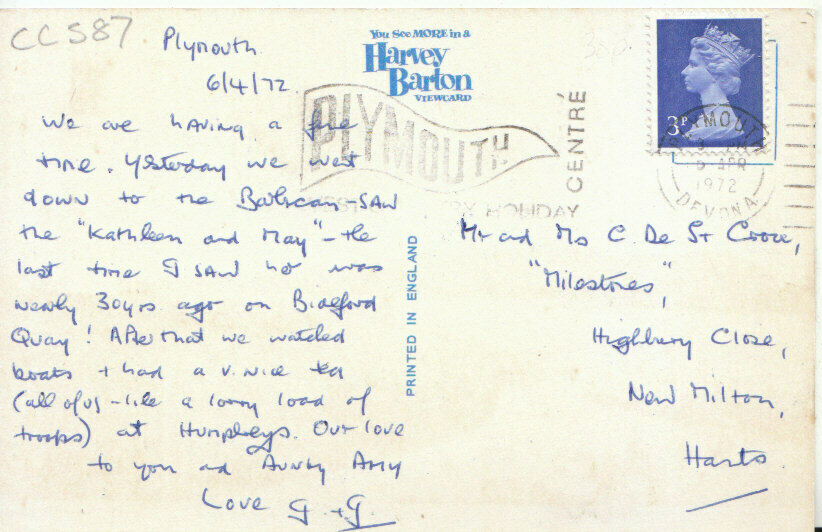 CC587
Plymouth
6/4/72
We are having a fine
time. Yesterday we went
down to the Barbican - SAW
the "Kathleen and May" - the
last time I SAW her was
nearly 30yrs ago on Bideford
Quay! After that we watched
boats + had a v. nice tea
(all of us - like a lorry load of
troops) at Humphreys. Our love
to you and Aunty Amy
Love G + G.
You See MORE in a
Harvey
Barton
VIEWCARD
PRINTED IN ENGLAND
PLYMOUTH
HOLIDAY
CENTRE
3P
PLYMOUTH
APR
1972
DEVON A
Mr and Mrs C. De St Croix,
"Milestones",
Highbury Close,
New Milton,
Hants.